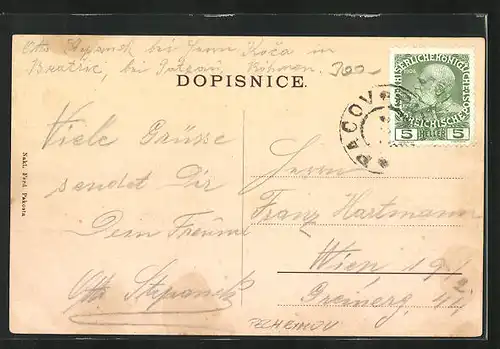 Otto Stepanek bei Herrn Koča in
Bratřic, bei Patzau, Böhmen. 300-
DOPISNICE.
PACOV
KAISERLICHE KÖNIGLICHE ÖSTERREICHISCHE POST
1908
5 HELLER 5
Viele Grüsse
sendet Dir
Dein Freund
Otto Stepanek
Herrn
Franz Hartmann
Wien, 19/2
Greinerg. 42,
Nakl. Ferd. Pakosta